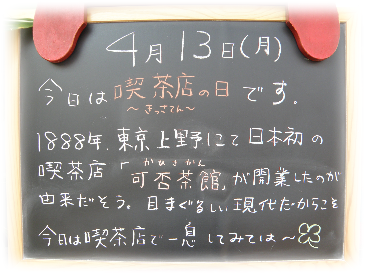 4月13日(月)
今日は喫茶店の日です。
～きっさてん～
1888年、東京上野にて日本初の
かひさかん
喫茶店「可否茶館」が開業したのが
由来だそう。目まぐるしい現代だからこそ
今日は喫茶店で一息してみては～